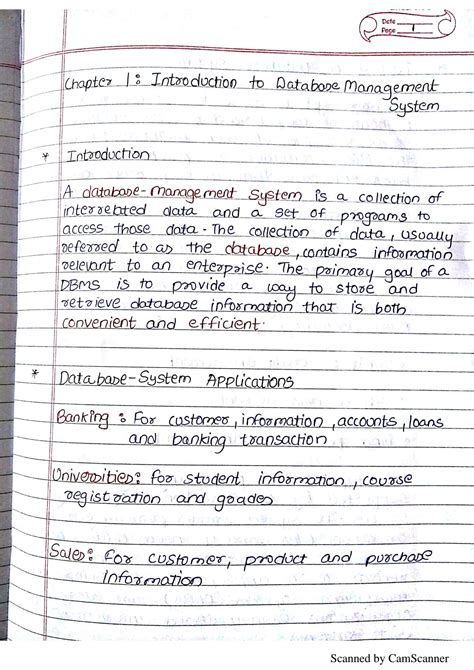 Date
Page 1
Chapter 1: Introduction to Database Management
System
* Introduction
A database-management system is a collection of
interrelated data and a set of programs to
access those data. The collection of data, usually
referred to as the database, contains information
relevant to an enterprise. The primary goal of a
DBMS is to provide a way to store and
retrieve database information that is both
convenient and efficient.
* Database-System Applications
Banking: For customer, information, accounts, loans
and banking transaction
Universities: for student information, course
registration and grades
Sales: For customer, product and purchase
information
Scanned by CamScanner